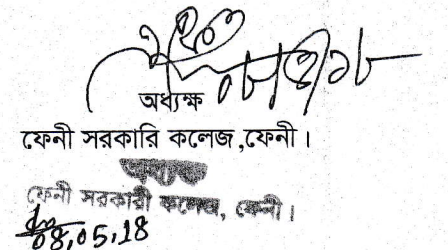 ০৮/৫/১৮
অধ্যক্ষ
ফেনী সরকারি কলেজ ,ফেনী ।
অধ্যক্ষ
ফেনী সরকারী কলেজ, ফেনী ।
08,05,18